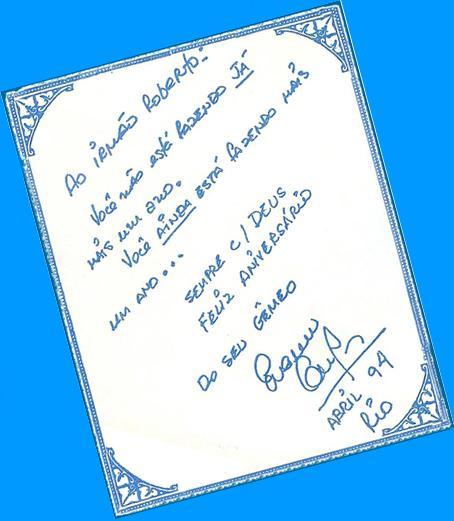 AO IRMÃO ROBERTO:
VOCÊ NÃO ESTÁ FAZENDO JÁ
MAIS UM ANO.
VOCÊ AINDA ESTÁ FAZENDO MAIS
UM ANO...
SEMPRE C/ DEUS
FELIZ ANIVERSÁRIO
DO SEU GÊMEO
ABRIL 94
RIO